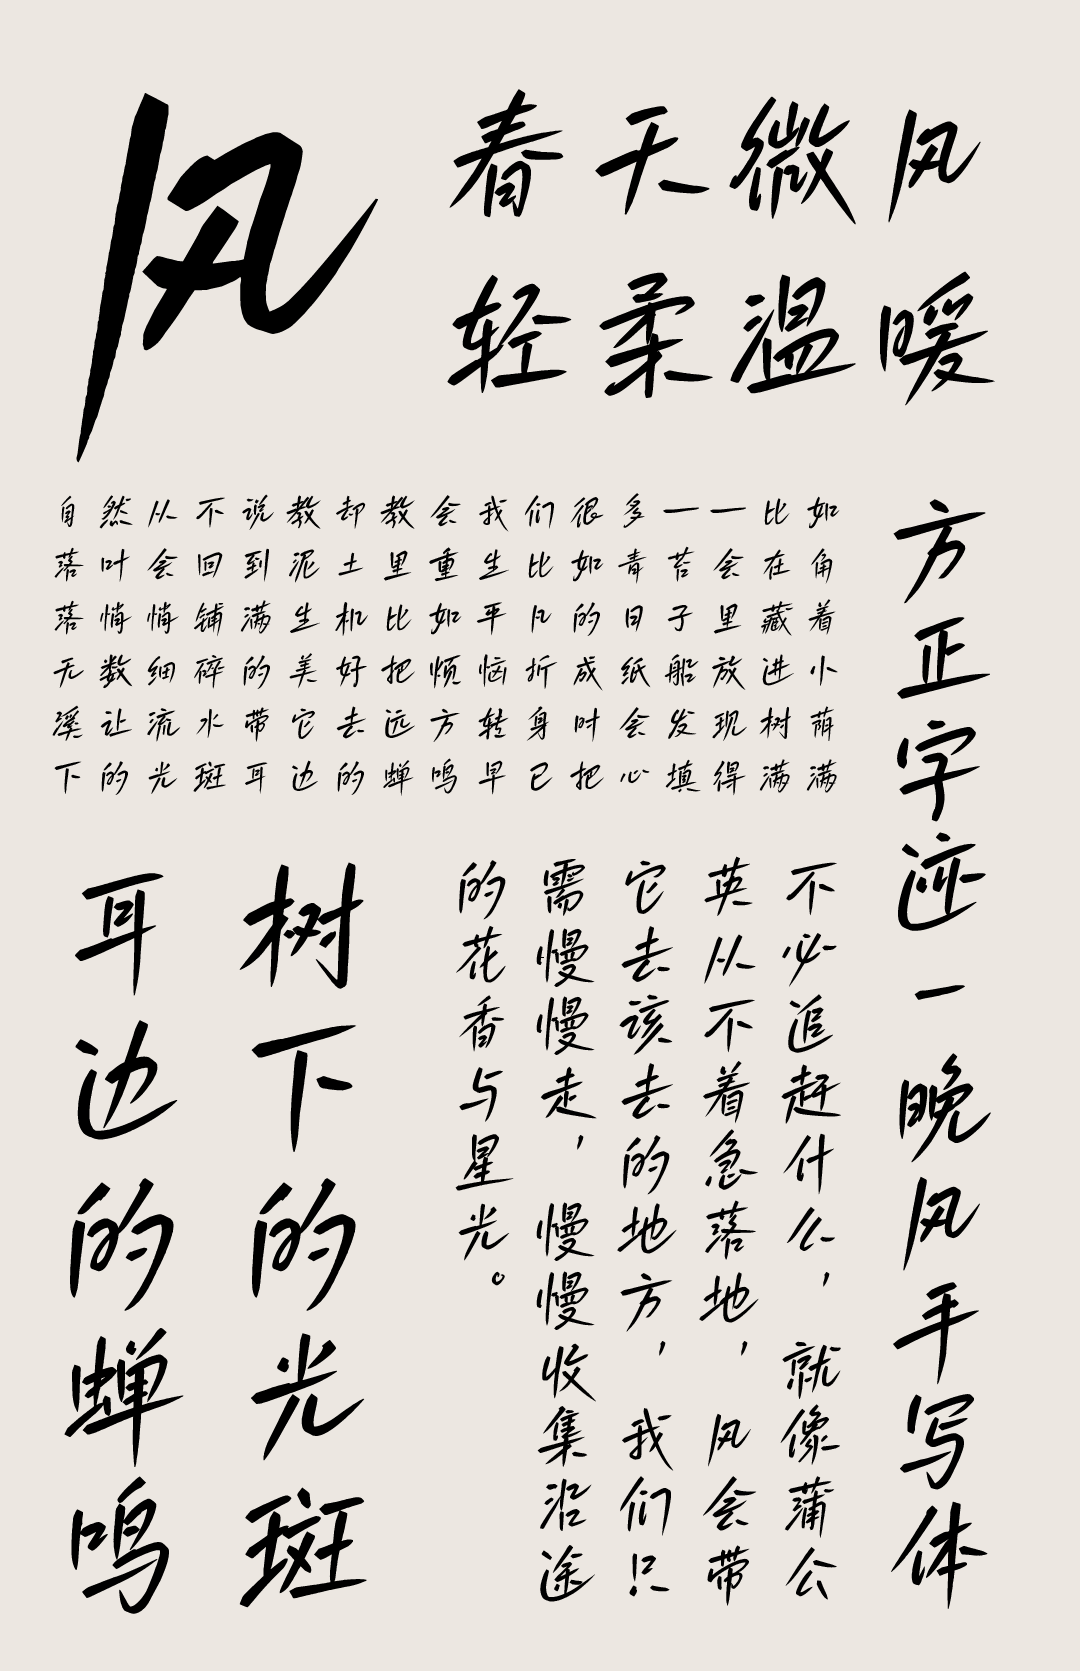 风
春天微风
轻柔温暖
自然从不说教却教会我们很多——比如
落叶会回到泥土里重生比如青苔会在角
落悄悄铺满生机比如平凡的日子里藏着
无数细碎的美好把烦恼折成纸船放进小
溪让流水带它去远方转身时会发现树荫
下的光斑耳边的蝉鸣早已把心填得满满
方正字迹-晚风手写体
不必追赶什么，就像蒲公
英从不着急落地，风会带
它去该去的地方，我们只
需慢慢走，慢慢收集沿途
的花香与星光。
树下的光斑
耳边的蝉鸣